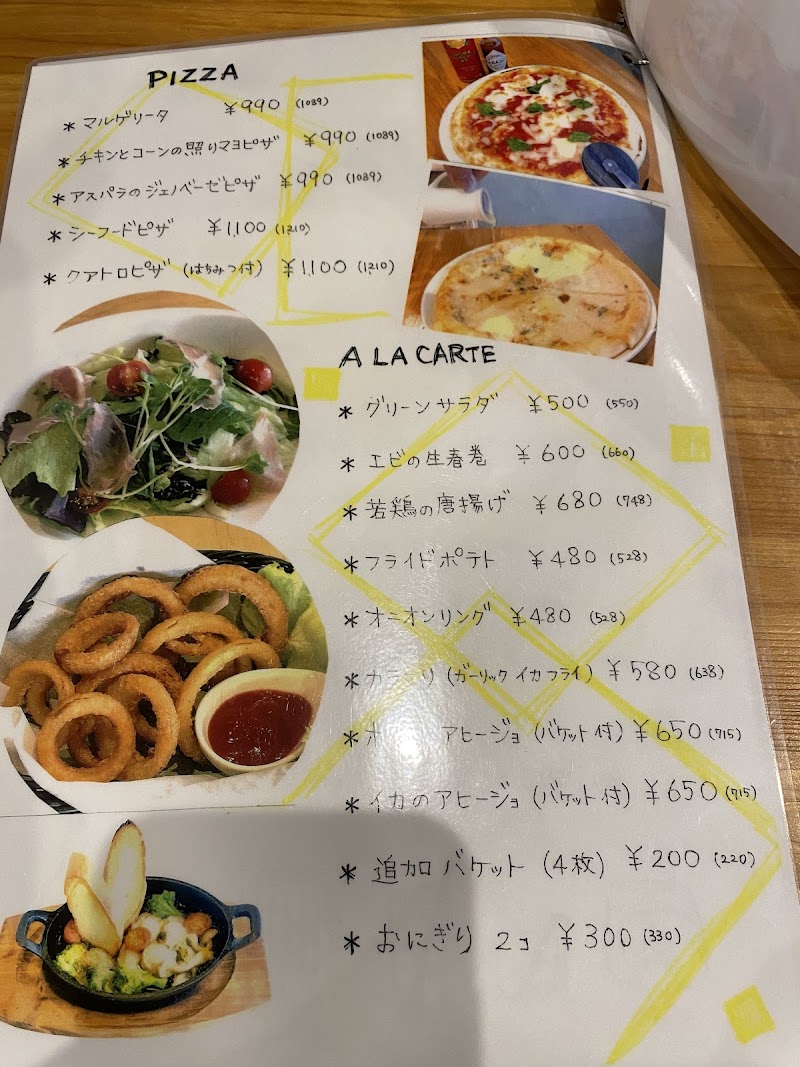 PIZZA
* マルゲリータ ¥990 (1089)
* チキンとコーンの照りマヨピザ ¥990 (1089)
* アスパラのジェノベーゼピザ ¥990 (1089)
* シーフードピザ ¥1,100 (1210)
* クアトロピザ (はちみつ付) ¥1,100 (1,210)
A LA CARTE
* グリーンサラダ ¥500 (550)
* エビの生春巻 ¥600 (660)
* 若鶏の唐揚げ ¥680 (748)
* フライドポテト ¥480 (528)
* オニオンリング ¥480 (528)
* (ガーリックイカフライ) ¥580 (638)
* アヒージョ (バケット付) ¥650 (715)
* イカのアヒージョ (バケット付) ¥650 (715)
* 追加バケット (4枚) ¥200 (220)
* おにぎり 2コ ¥300 (330)